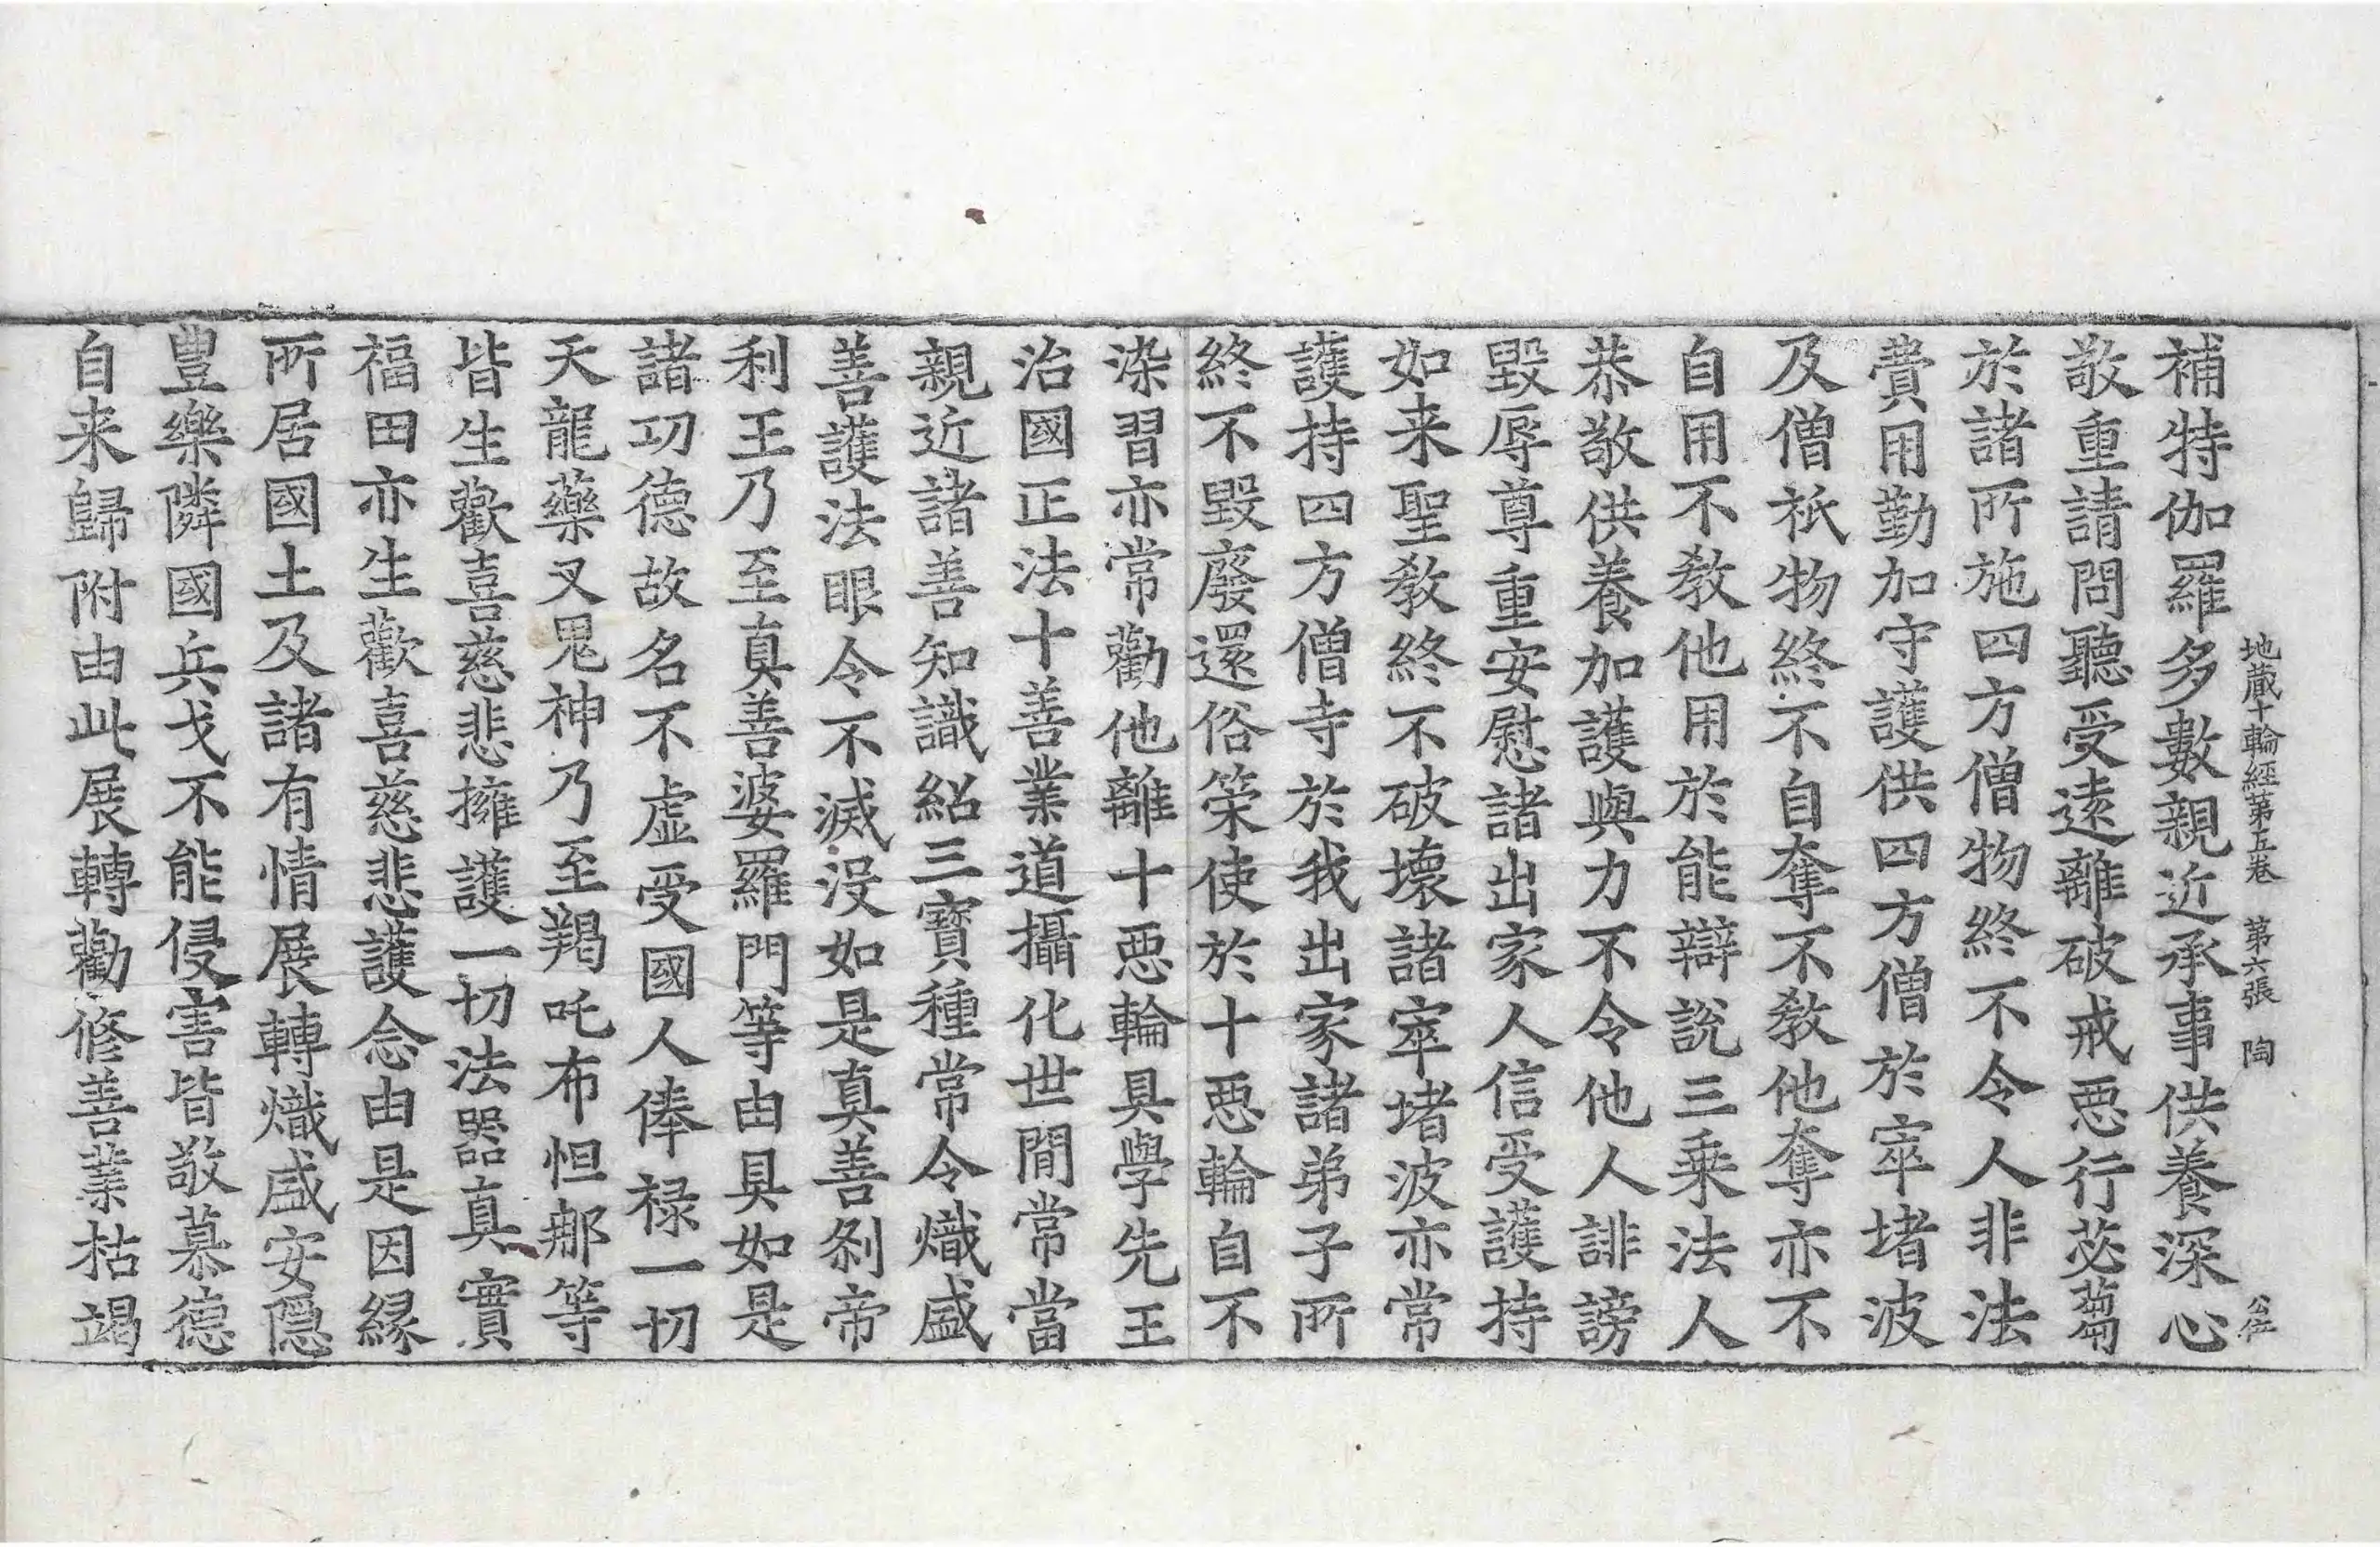 地蔵十輪經第五卷　第六張　陶　公仁
補特伽羅多數親近承事供養深心
敬重請問聽受遠離破戒惡行苾蒭
於諸所施四方僧物終不令人非法
費用勤加守護供四方僧於窣堵波
及僧祇物終不自奪不教他奪亦不
自用不教他用於能辯說三乗法人
恭敬供養加護與力不令他人誹謗
毀辱尊重安慰諸出家人信受護持
如来聖教終不破壞諸窣堵波亦常
護持四方僧寺於我出家諸弟子所
終不毀廢還俗策使於十惡輪自不
染習亦常勸他離十惡輪具學先王
治國正法十善業道攝化世間常當
親近諸善知識紹三寶種常令熾盛
善護法眼令不滅没如是真善刹帝
利王乃至真善婆羅門等由具如是
諸功德故名不虛受國人俸禄一切
天龍藥叉鬼神乃至羯吒布怛那等
皆生歡喜慈悲擁護一切法器真實
福田亦生歡喜慈悲護念由是因縁
所居國土及諸有情展轉熾盛安隱
豊樂隣國兵戈不能侵害皆敬慕德
自来歸附由此展轉勸修善業枯竭